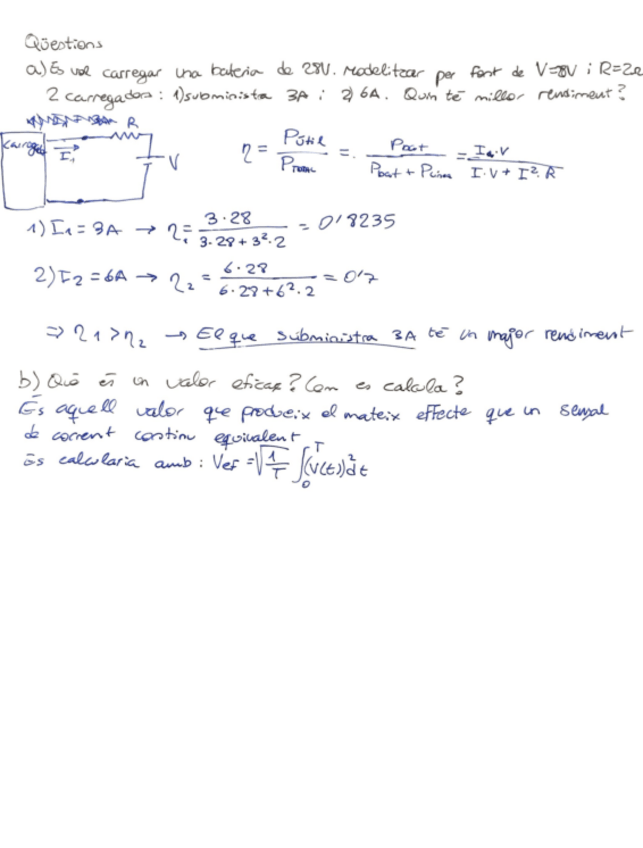 Qüestions
a) Es vol carregar una bateria de 28V. Modelitzar per font de V=8V i R=2Ω
2 carregadors: 1) subministra 3A i 2) 6A. Quin té millor rendiment?
R
carreg
I₁
V
η = Pútil / Ptotal = Pbat / (Pbat + Plínia) = I·V / (I·V + I²·R)
1) I₁ = 3A → η₁ = 3·28 / (3·28 + 3²·2) = 0'8235
2) I₂ = 6A → η₂ = 6·28 / (6·28 + 6²·2) = 0'7
⇒ η₁ > η₂ → El que subministra 3A té un major rendiment
b) Què és un valor eficaç? Com es calcula?
És aquell valor que produeix el mateix effecte que un senyal
de corrent continu equivalent
es calcularia amb: Vef = √(1/T ∫₀ᵀ (V(t))² dt